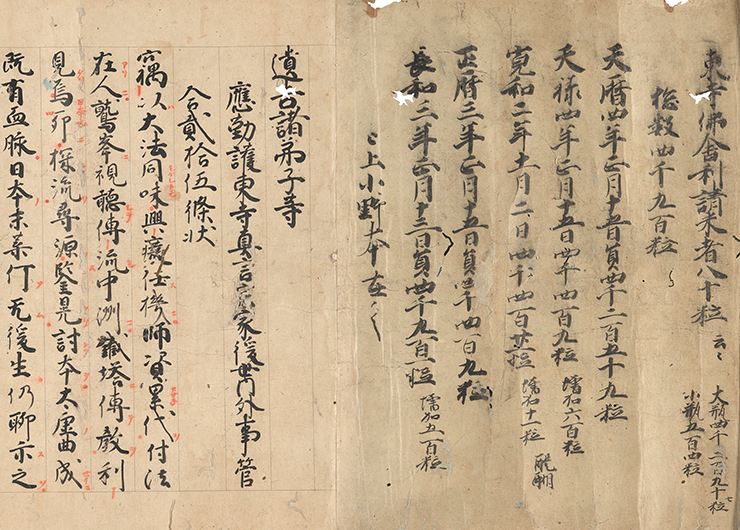 東寺佛舎利請来者八十粒云〻
大瓶四千二百九十七粒
小瓶五百四粒
惣数四千九百粒
天暦四年正月十五日員四千二百五十九粒
天禄四年正月十五日四千四百九粒 増加六百粒
寛和二年十一月二日四千四百廿粒 増加十一粒 醍醐
正暦三年正月十五日員四千四百九粒
長和三年正月十三日員四千九百一粒 増加五百粒
〻上小野本在〻
遺告諸弟子等
應勤護東寺真言宗家後世内外事管
合貳拾伍條状
竊以大法同味興癈任機師資累代付法
在人鷲峯視聽傳流中洲鐵塔傳教利
見焉卯探流尋源鑒晃討本大唐曲成
既有血脉日本末葉何无後生仍聊示之